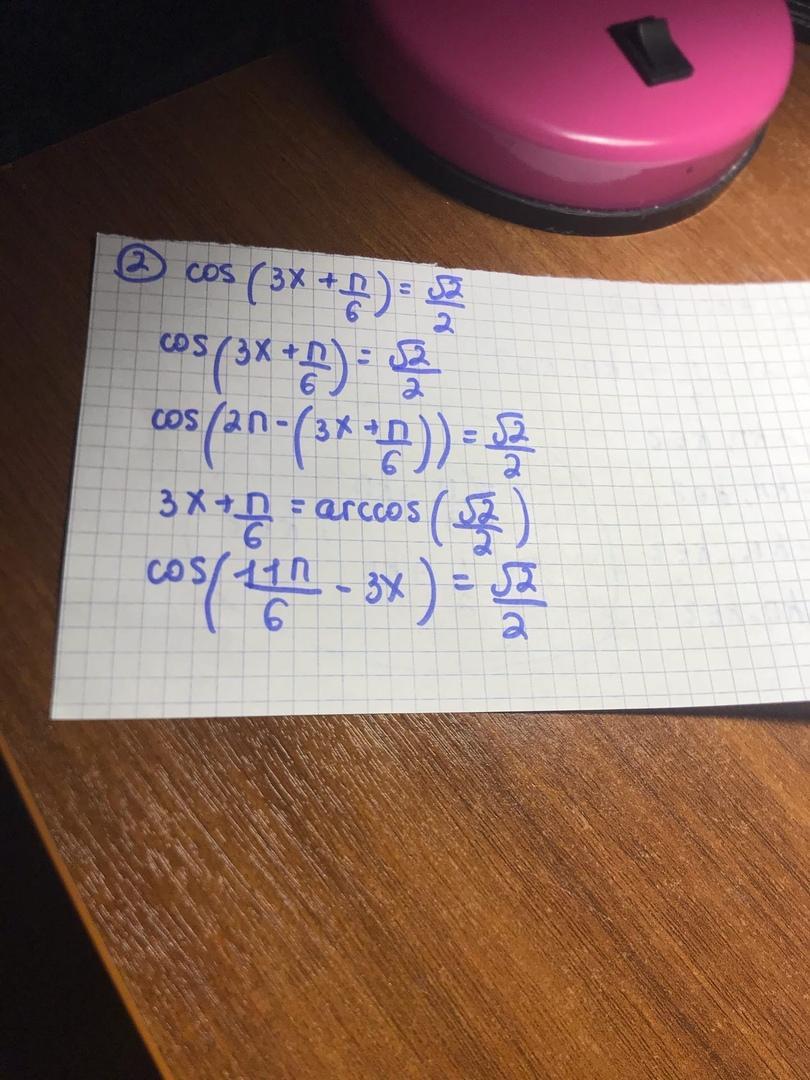 ② cos(3x + π/6) = √2/2
cos(3x + π/6) = √2/2
cos(2π - (3x + π/6)) = √2/2
3x + π/6 = arccos(√2/2)
cos(11π/6 - 3x) = √2/2